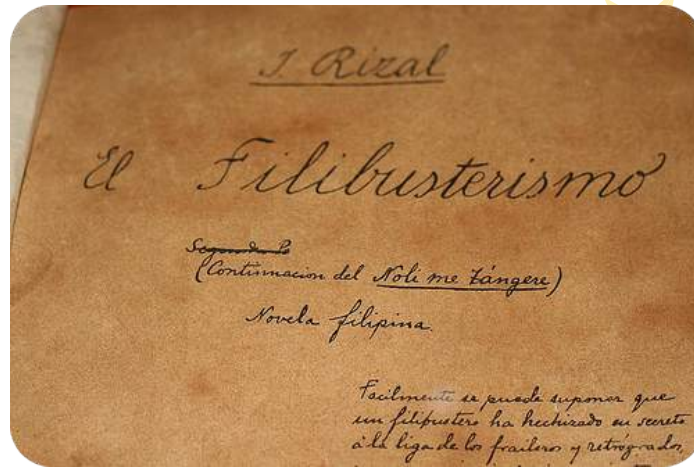 J. Rizal
El Filibusterismo
Segunda P
(Continuacion del Noli me tángere)
Novela filipina.
Facilmente se puede suponer que
un filibustero ha hechizado en secreto
á la liga de los fraileros y retrógrados,